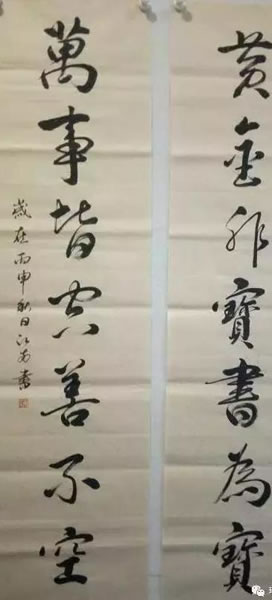 黄金非寶書為寶
萬事皆空善不空
歲在丙申秋日江南書